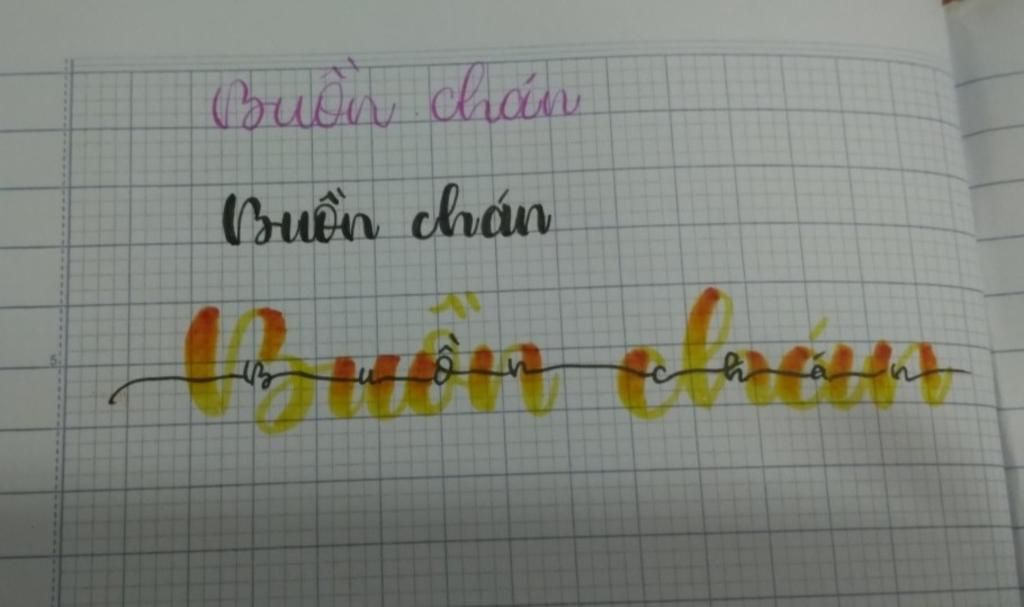 Buồn chán
Buồn chán
Buồn chán
Buồn chán